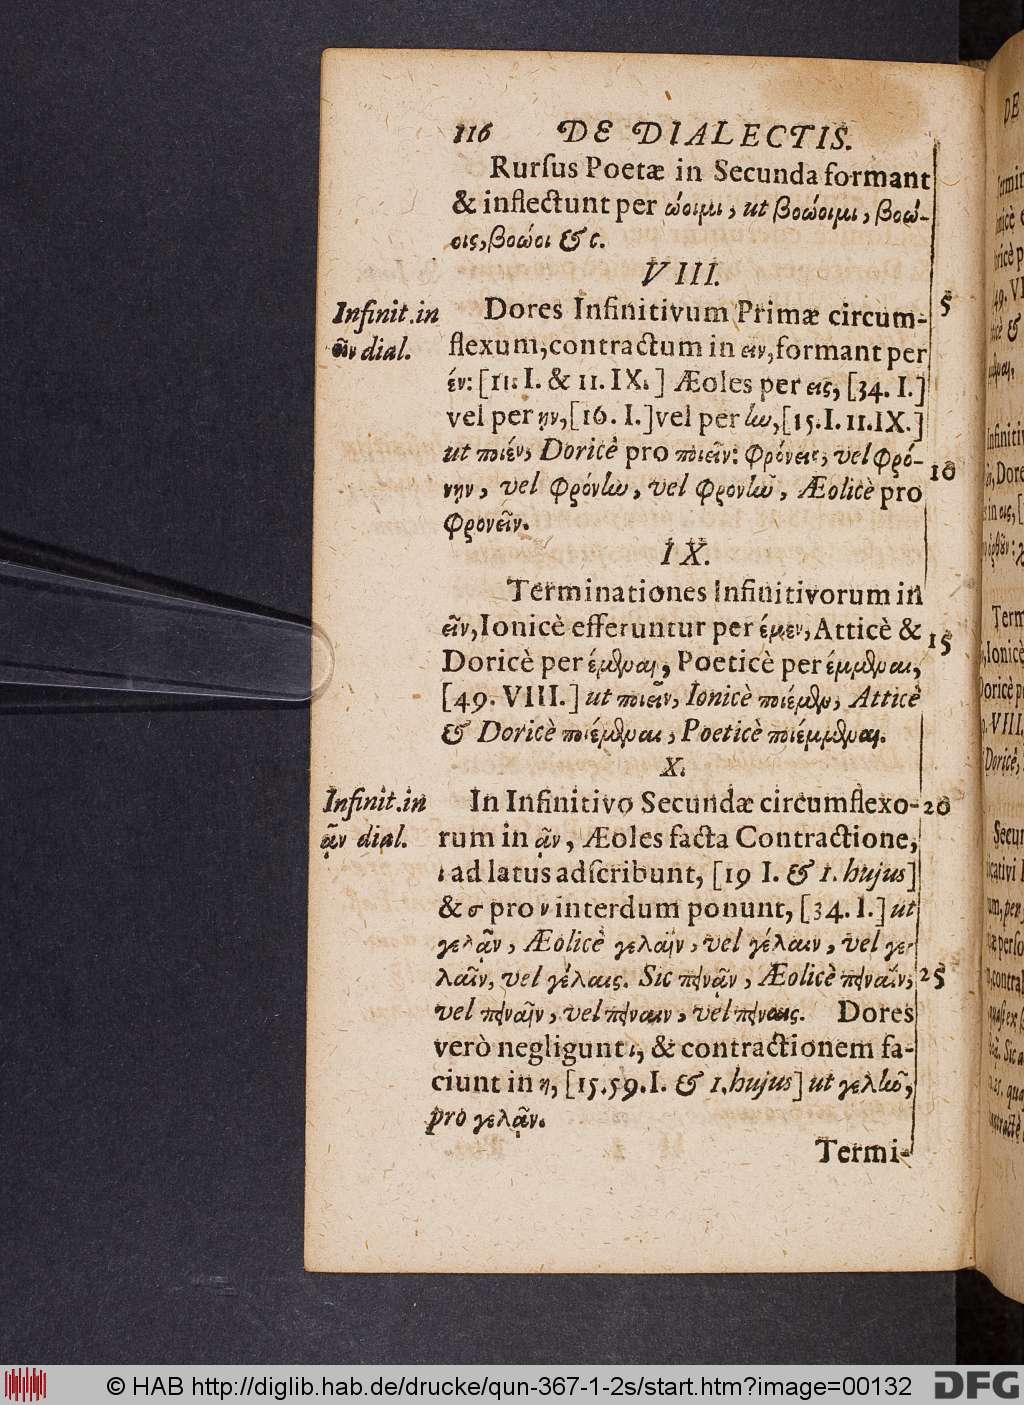 116 DE DIALECTIS.
Rurſus Poetæ in Secunda formant
& inflectunt per ώοιμι, ut βοώοιμι, βοώ-
οις, βοώοι &c.
VIII.
Infinit. in
εῖν dial.
Dores Infinitivum Primæ circum-
flexum, contractum in ειν, formant per
έν: [11. I. & 11. IX.] Æoles per εις, [34. I.]
vel per ην, [16. I.] vel per ων, [15. I. 11. IX.]
ut ποιέν, Doricè pro ποιεῖν: φρόνεις, vel φρό-
νην, vel φρόνων, vel φρονῶν, Æolicè pro
φρονεῖν.
IX.
Terminationes Infinitivorum in
εῖν, Ionicè efferuntur per έμεν, Atticè &
Doricè per έμεναι, Poeticè per έμμεναι,
[49. VIII.] ut ποιεῖν, Ionicè ποιέμεν, Atticè
& Doricè ποιέμεναι, Poeticè ποιέμμεναι.
X.
Infinit. in
ᾷν dial.
In Infinitivo Secundæ circumflexo-
rum in ᾷν, Æoles facta Contractione,
ι ad latus adſcribunt, [19 I. & 1. hujus]
& σ pro ν interdum ponunt, [34. I.] ut
γελᾷν, Æolicè γελαῖν, vel γέλαιν, vel γε-
λαῖν, vel γέλαις. Sic πεινᾷν, Æolicè πειναῖν,
vel πειναῖν, vel πείναιν, vel πείναις. Dores
verò negligunt ι, & contractionem fa-
ciunt in η, [15. 59. I. & 1. hujus] ut γελῶν,
pro γελᾷν.
Termi-
5
10
15
20
25
© HAB http://diglib.hab.de/drucke/qun-367-1-2s/start.htm?image=00132
DFG